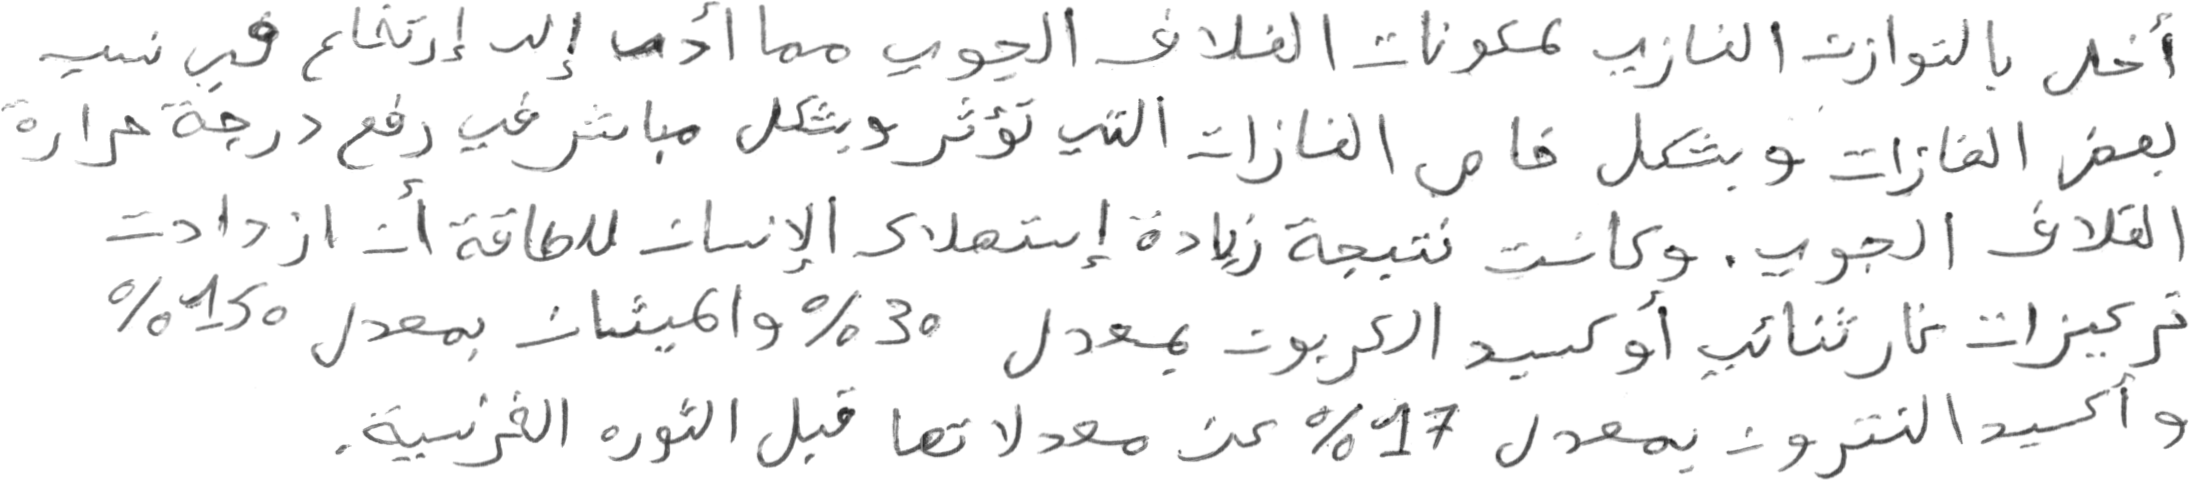 أخل بالتوازن الغازي لمكونات الغلاف الجوي مما أدى إلى إرتفاع في نسب
بعض الغازات وبشكل خاص الغازات التي تؤثر وبشكل مباشر في رفع درجة حرارة
الغلاف الجوي. وكانت نتيجة زيادة إستهلاك الإنسان للطاقة أن ازدادت
تركيزات غاز ثنائي أوكسيد الكربون بمعدل 30% والميثان بمعدل 150%
وأكسيد النترون بمعدل 17% عن معدلاتها قبل الثوره الفرنسية.